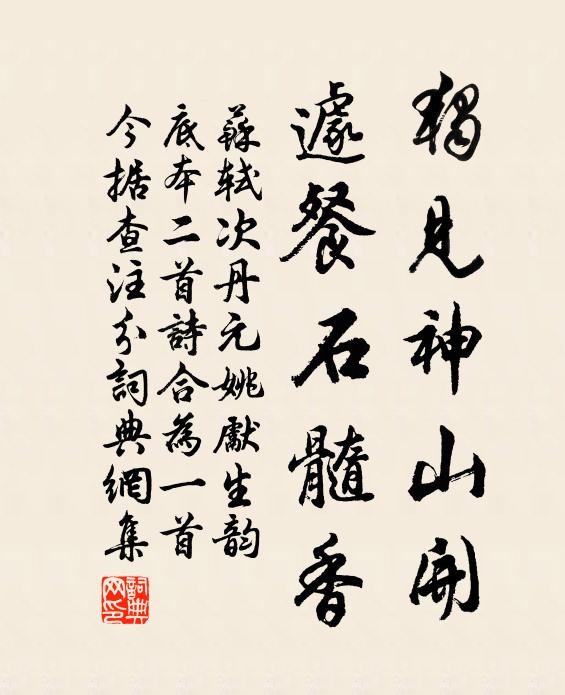 獨見神山開
遽餐石髓香
蘇軾次丹元姚獻生韵
底本二首詩合為一首
今据查注分詞典網集
詞典网印